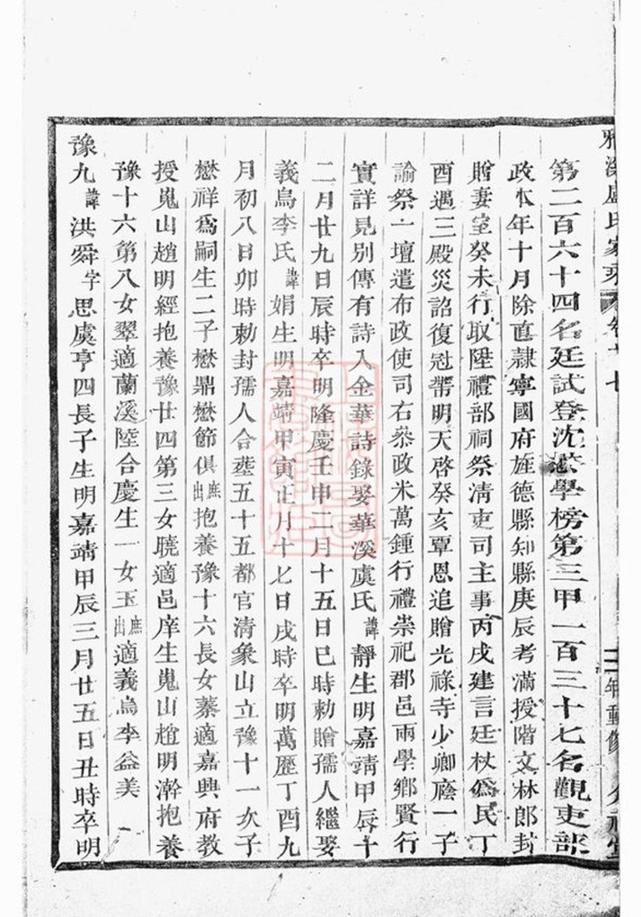 雅溪盧氏家乘 卷十七
第二百六十四名廷試登沈懋學榜第三甲一百三十七名觀吏部
政本年十月除直隸寧國府旌德縣知縣庚辰考滿授階文林郎封
贈妻室癸未行取陞禮部祠祭清吏司主事丙戌建言廷杖為民丁
酉遇三殿災詔復冠帶明天啓癸亥覃恩追贈光祿寺少卿廕一子
諭祭一壇遣布政使司右叅政米萬鍾行禮崇祀郡邑兩學鄉賢行
實詳見別傳有詩入金華詩錄娶華溪虞氏諱靜生明嘉靖甲辰十
二月廿九日辰時卒明隆慶壬申二月十五日巳時勅贈孺人繼娶
義烏李氏諱娟生明嘉靖甲寅正月十七日戌時卒明萬歷丁酉九
月初八日卯時勅封孺人合塟五十五都官清象山立豫十一次子
懋祥爲嗣生二子懋鼎懋節俱庶出抱養豫十六長女蓁適嘉興府教
授嵬山趙明經抱養豫廿四第三女驍適邑庠生嵬山趙明澣抱養
豫十六第八女翠適蘭溪陸合慶生一女玉庶出適義烏李益美
豫九諱洪舜字思虞亨四長子生明嘉靖甲辰三月廿五日丑時卒明